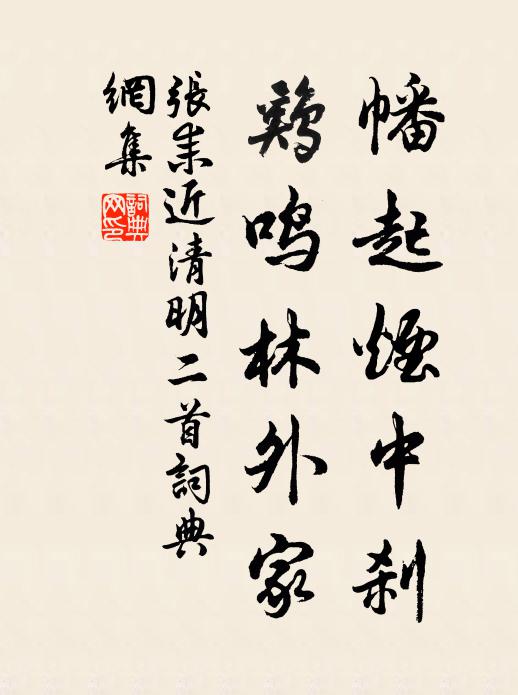 幡起煙中刹
鷄鳴林外家
張耒近清明二首詞典
網集
詞典
网印